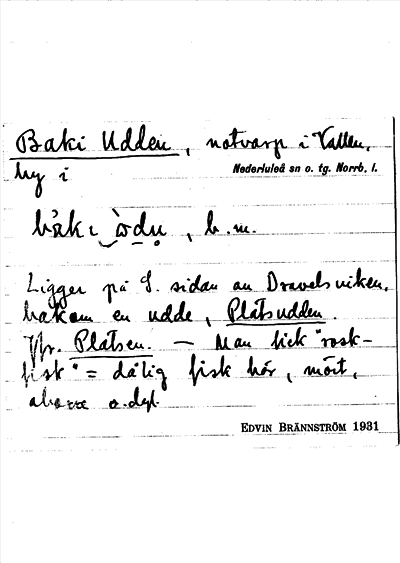 Baki Udden, notvarp i Vallen,
by i Nederluleå sn o. tg. Norrb. l.
b. m.
Ligger på S. sidan av Dravelsviken,
bakom en udde, Platsudden.
Jfr. Platsen. — Man fick "rosk-
fisk" = dålig fisk här, mört,
aborre o. dyl.
EDVIN BRÄNNSTRÖM 1931